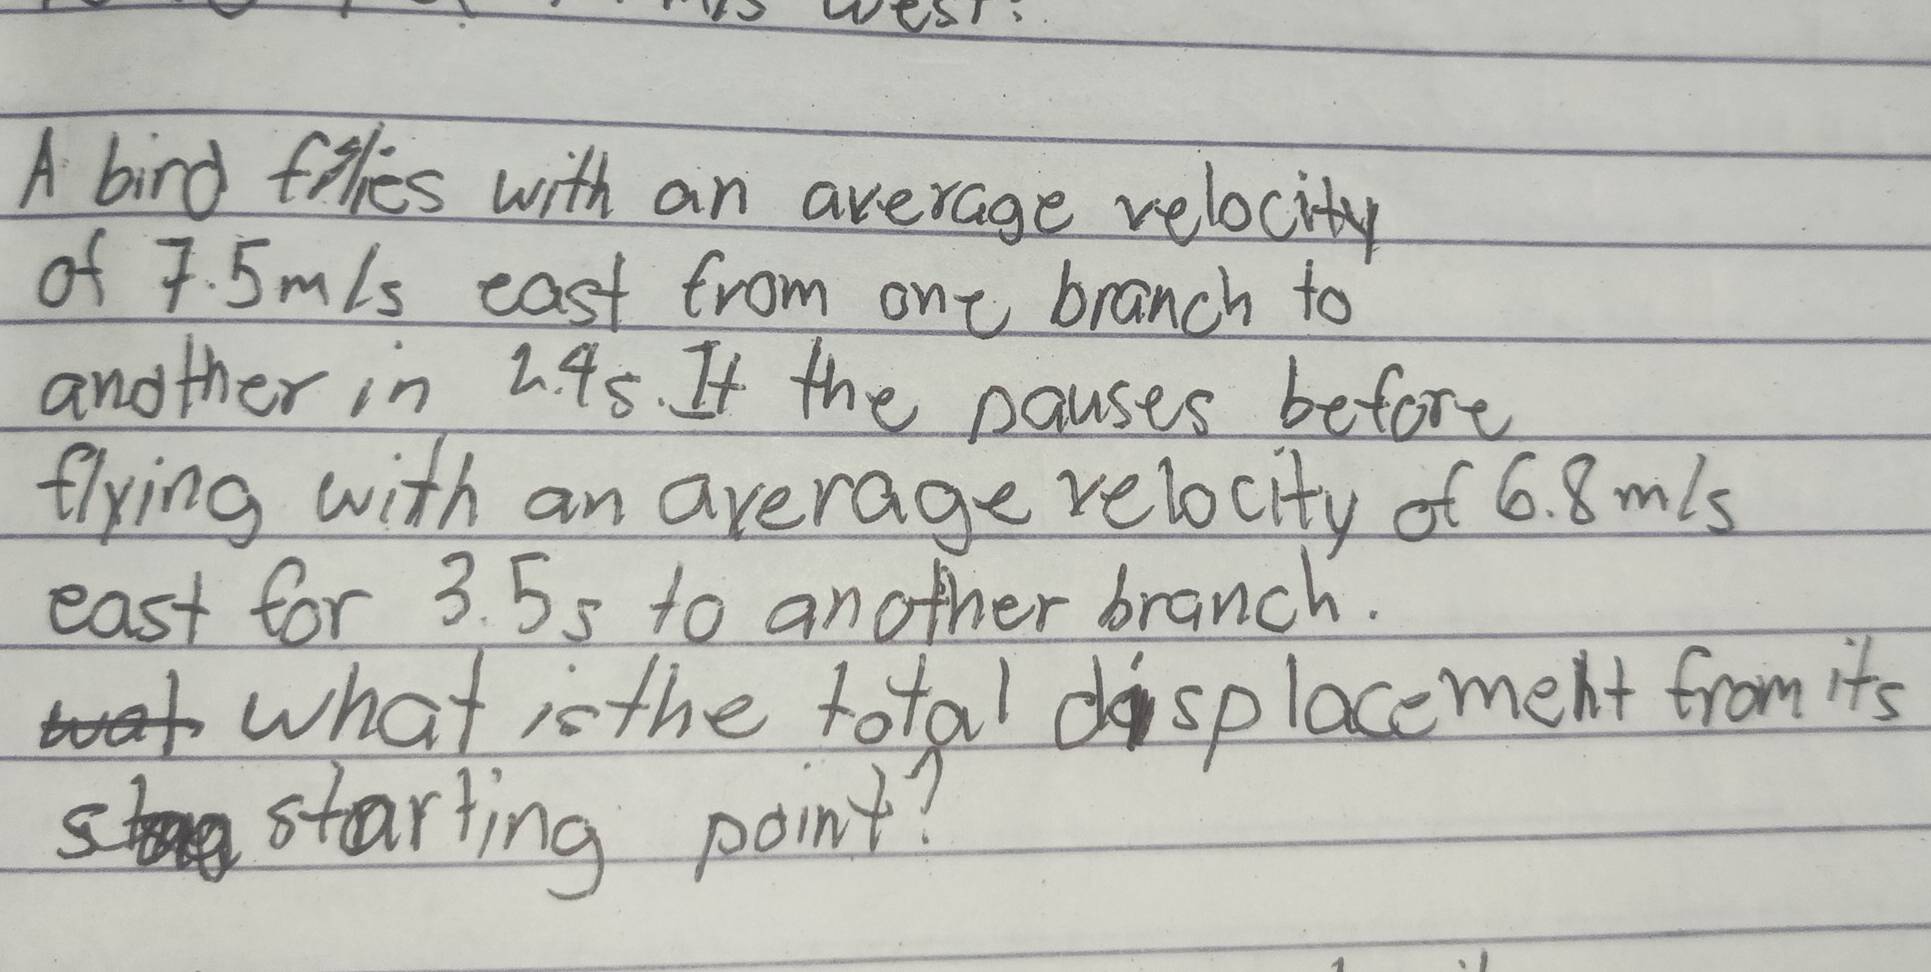 m/s west?
A bird flies with an average velocity
of 7.5m/s east from one branch to
another in 2.4s. It the pauses before
flying with an average velocity of 6.8m/s
east for 3.5s to another branch.
wat what is the total displacement from its
starting point?